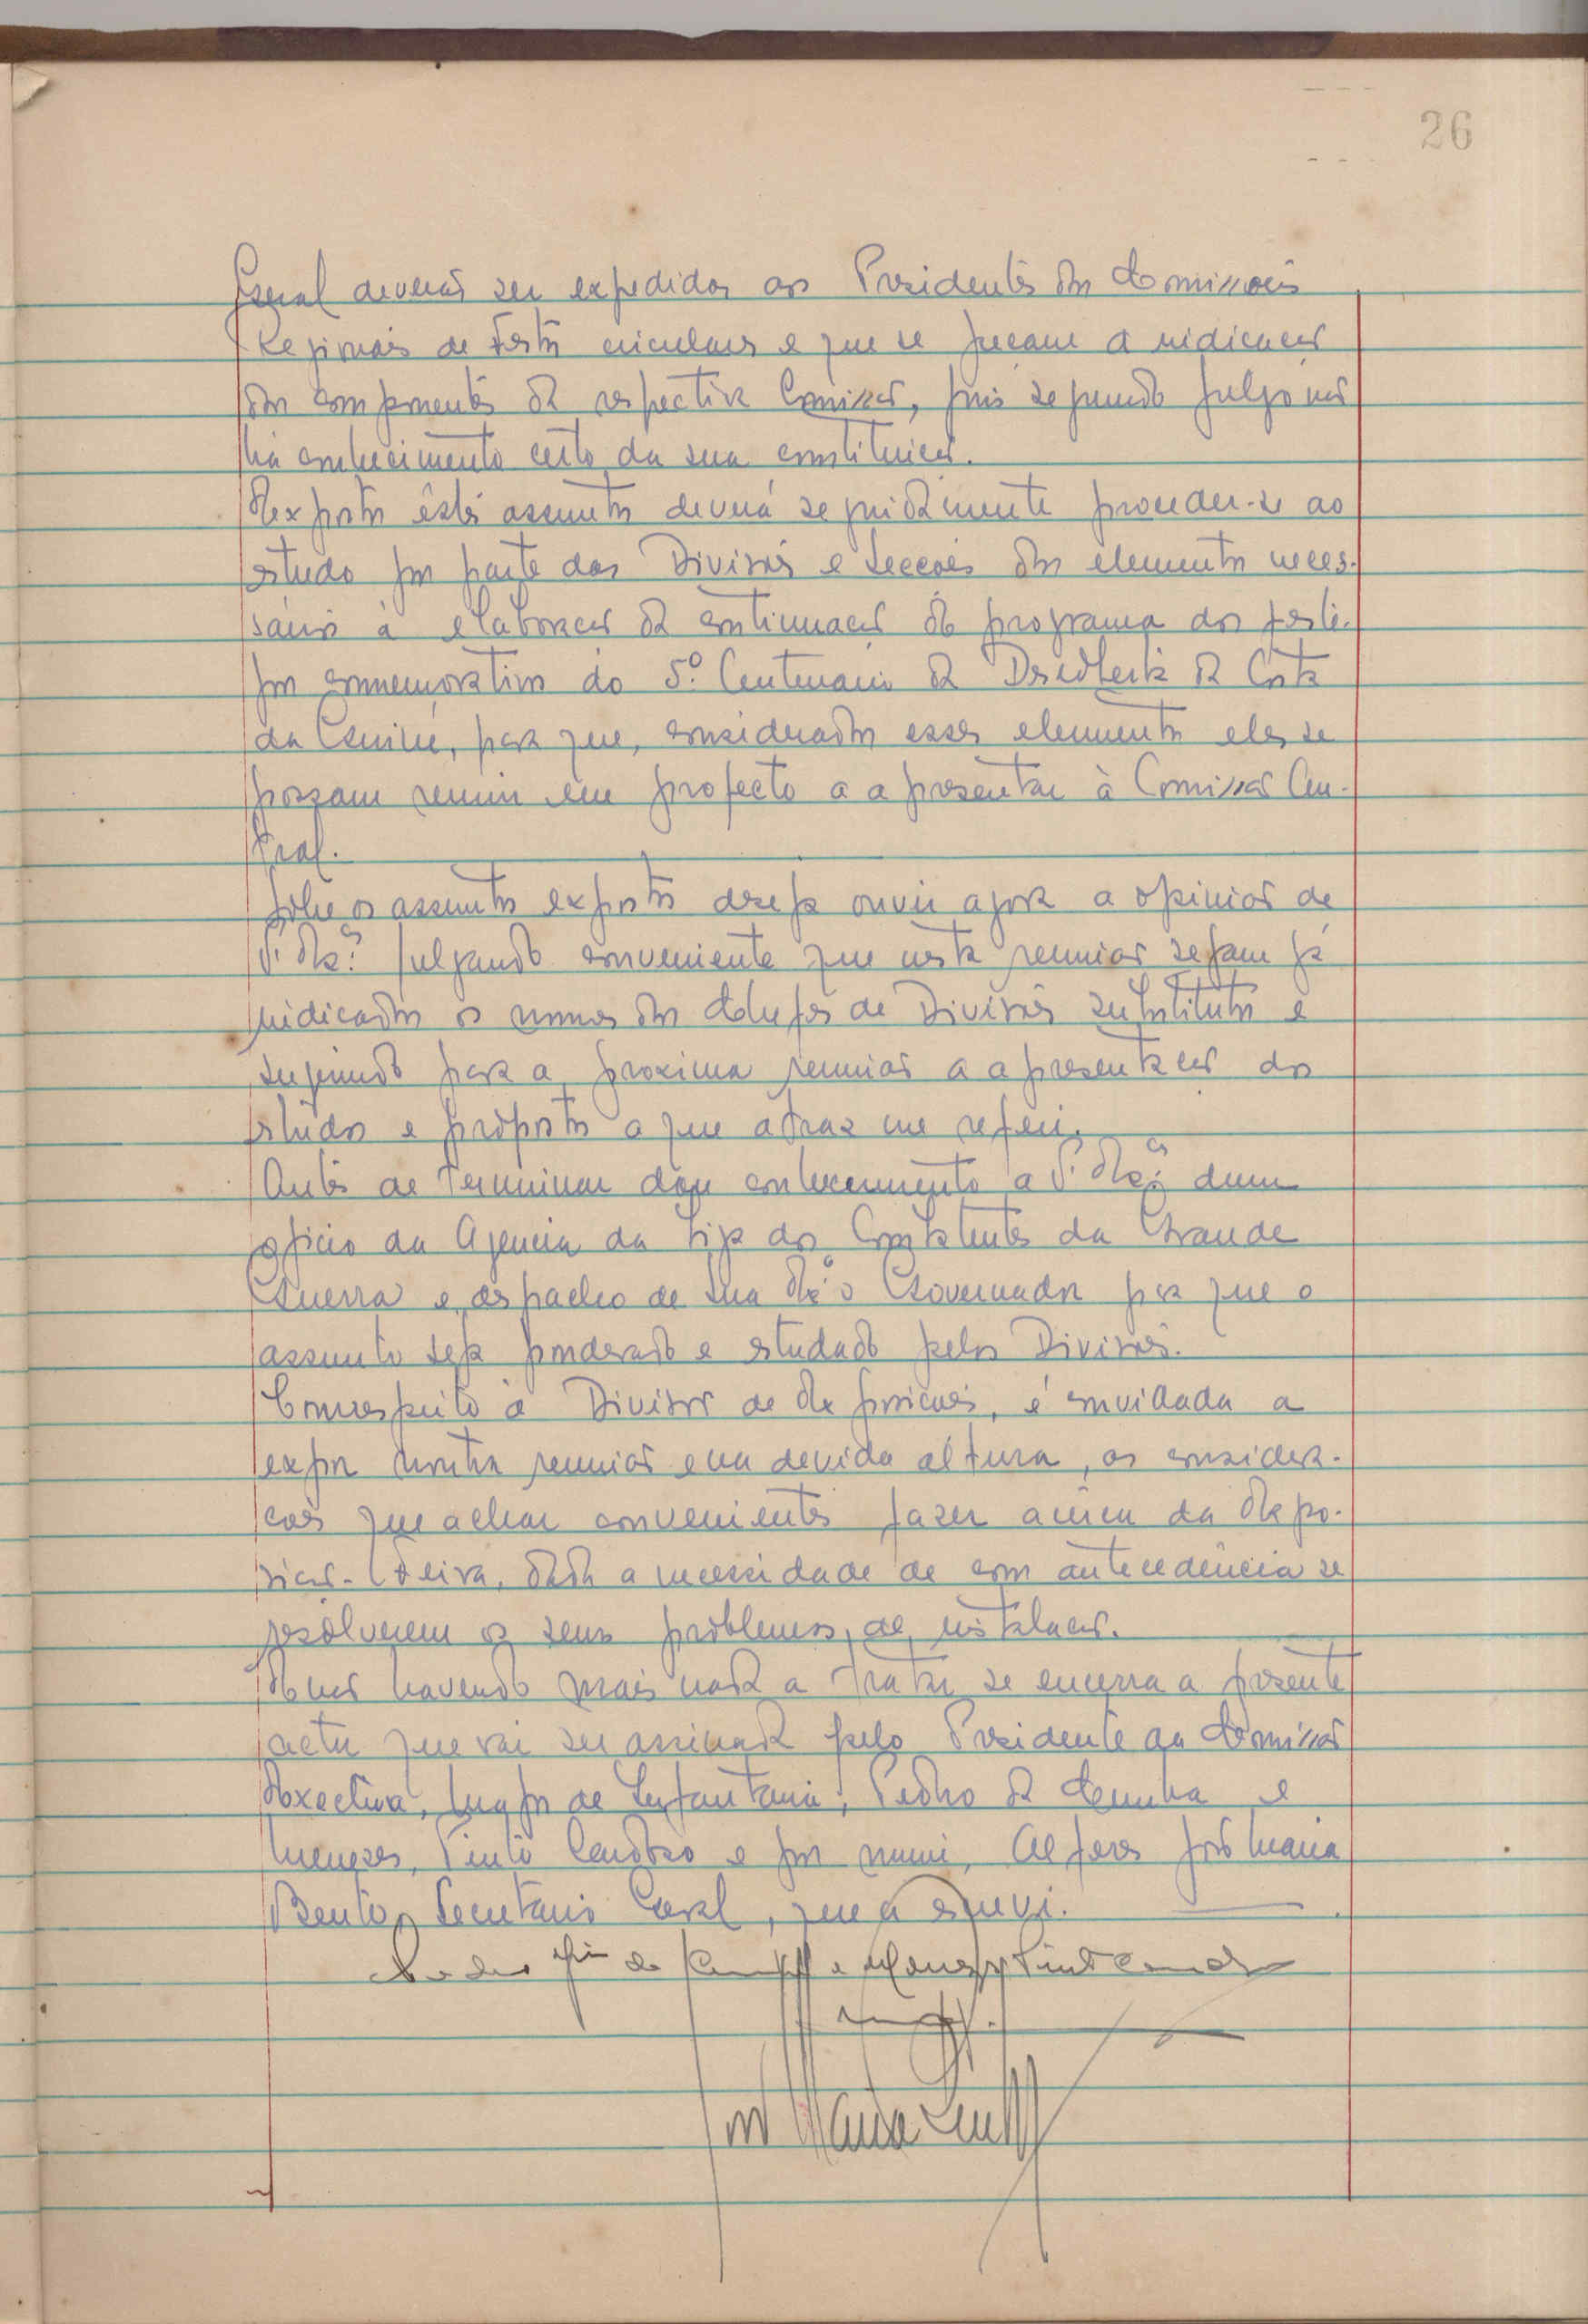 26
Geral deverão ser expedidas aos Presidentes das Comissões
Regionais de Festas circulares e que se peçam a indicação
dos componentes da respectiva Comissão, pois segundo julgo não
há conhecimento certo da sua constituição.
Expostos êstes assuntos deverá seguidamente proceder-se ao
estudo por parte das Divisões e Secções dos elementos neces-
sários à elaboração da continuação do programa dos feste-
jos commemorativos do 5.º Centenario da Descoberta da Costa
da Guiné, para que, considerados esses elementos eles se
possam reunir em projecto a apresentar à Comissão Cen-
tral.
Sobre os assuntos expostos deseja ouvir agora a opinião de
V. Ex.as julgando conveniente que nesta reunião sejam já
indicados os nomes dos Chefes de Divisões substitutos e
sugerindo para a proxima reunião a apresentação dos
estudos e propostas a que atraz me referi.
Antes de terminar dou conhecimento a V. Ex.as dum
oficio da Agencia da Liga dos Combatentes da Grande
Guerra e despacho de Sua Ex.ª o Governador para que o
assunto seja ponderado e estudado pelas Divisões.
Com respeito à Divisão de Exposições, é convidada a
expor noutra reunião e na devida altura, as considera-
ções que achar convenientes fazer acêrca da Expo-
sição-Feira, dada a necessidade de com antecedência se
resolverem os seus problemas de instalação.
E não havendo mais nada a tratar se encerra a presente
acta que vai ser assinada pelo Presidente da Comissão
Executiva, Major de Infantaria, Pedro da Cunha e
Menezes, Pinto Cardoso e por mim, Alferes José Maria
Bento, Secretario Geral, que a escrevi.
Pedro da Cunha e Menezes Pinto Cardoso
Major.
José Maria Bento